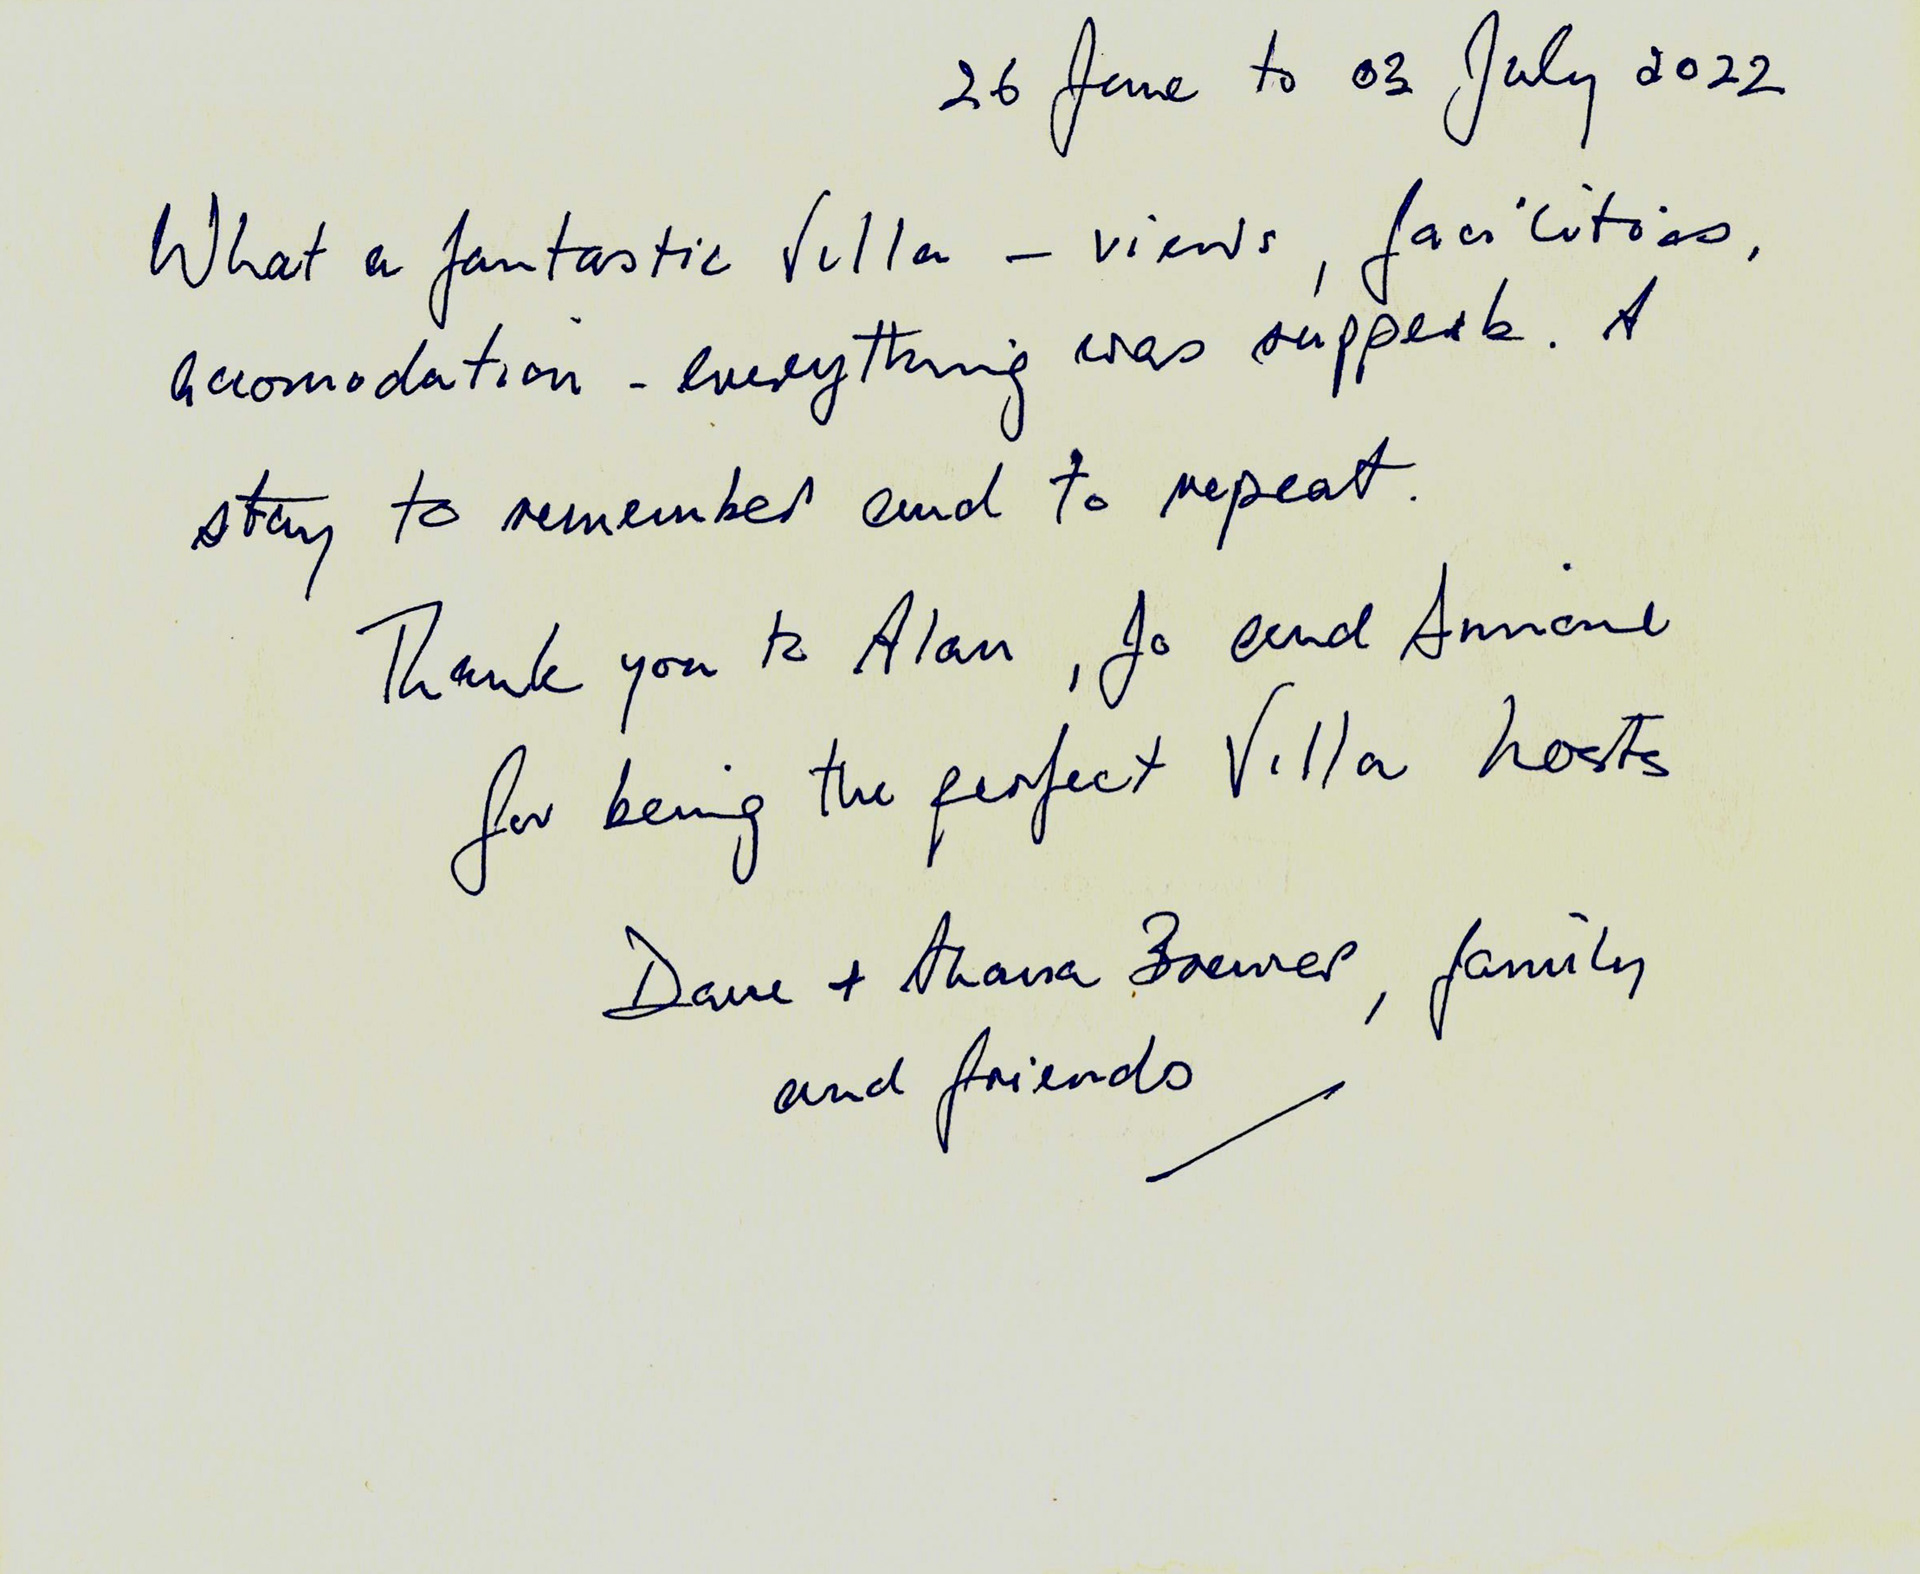 26 June to 03 July 2022
What a fantastic Villa - views, facilities,
accomodation - everything was supperb. A
stay to remember and to repeat.
Thank you to Alan, Jo and
for being the perfect Villa hosts
Dave + Brewer, family
and friends